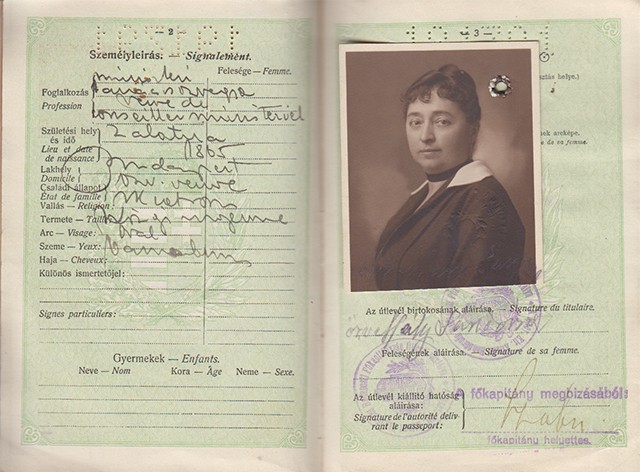 — 2 —
Személyleirás. — Signalement.
Felesége — Femme.
Foglalkozás
Profession
veuve de
conseiller ministériel
Születési hely
és idő
Zalatna
Lieu et date
de naissance
1865
Lakhely
Domicile
Budapest
Családi állapot
État de famille
özv. veuve
Vallás — Religion:
Termete — Taille
Arc — Visage:
oval
Szeme — Yeux:
barna brun
Haja — Cheveux:
Különös ismertetőjel:
Signes particuliers:
Gyermekek — Enfants.
Neve — Nom Kora — Âge Neme — Sexe.
— 3 —
Az útlevél birtokosának aláírása. — Signature du titulaire.
Feleségének aláírása. — Signature de sa femme.
Az útlevél kiállító hatóság
aláírása:
Signature de l'autorité déliv-
rant le passeport:
A főkapitány megbizásából:
Szabu
főkapitány helyettes.